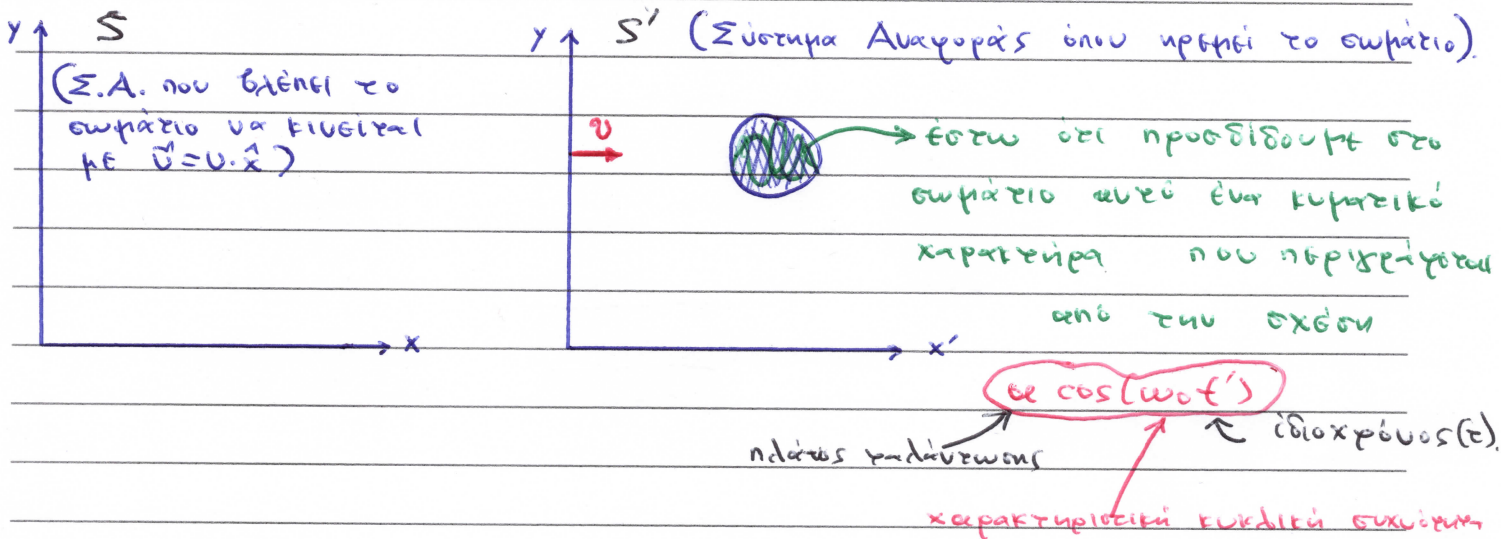 y S
(Σ.Α. που βλέπει το
σωμάτιο να κινείται
με υ⃗ = υ·x̂)
x
y S' (Σύστημα Αναφοράς όπου ηρεμεί το σωμάτιο).
υ
έστω ότι προσδίδουμε στο
σωμάτιο αυτό ένα κυματικό
χαρακτήρα που περιγράφεται
από την σχέση
x'
α cos(ω₀t')
πλάτος ταλάντωσης
ιδιοχρόνος (τ).
χαρακτηριστική κυκλική συχνότητα